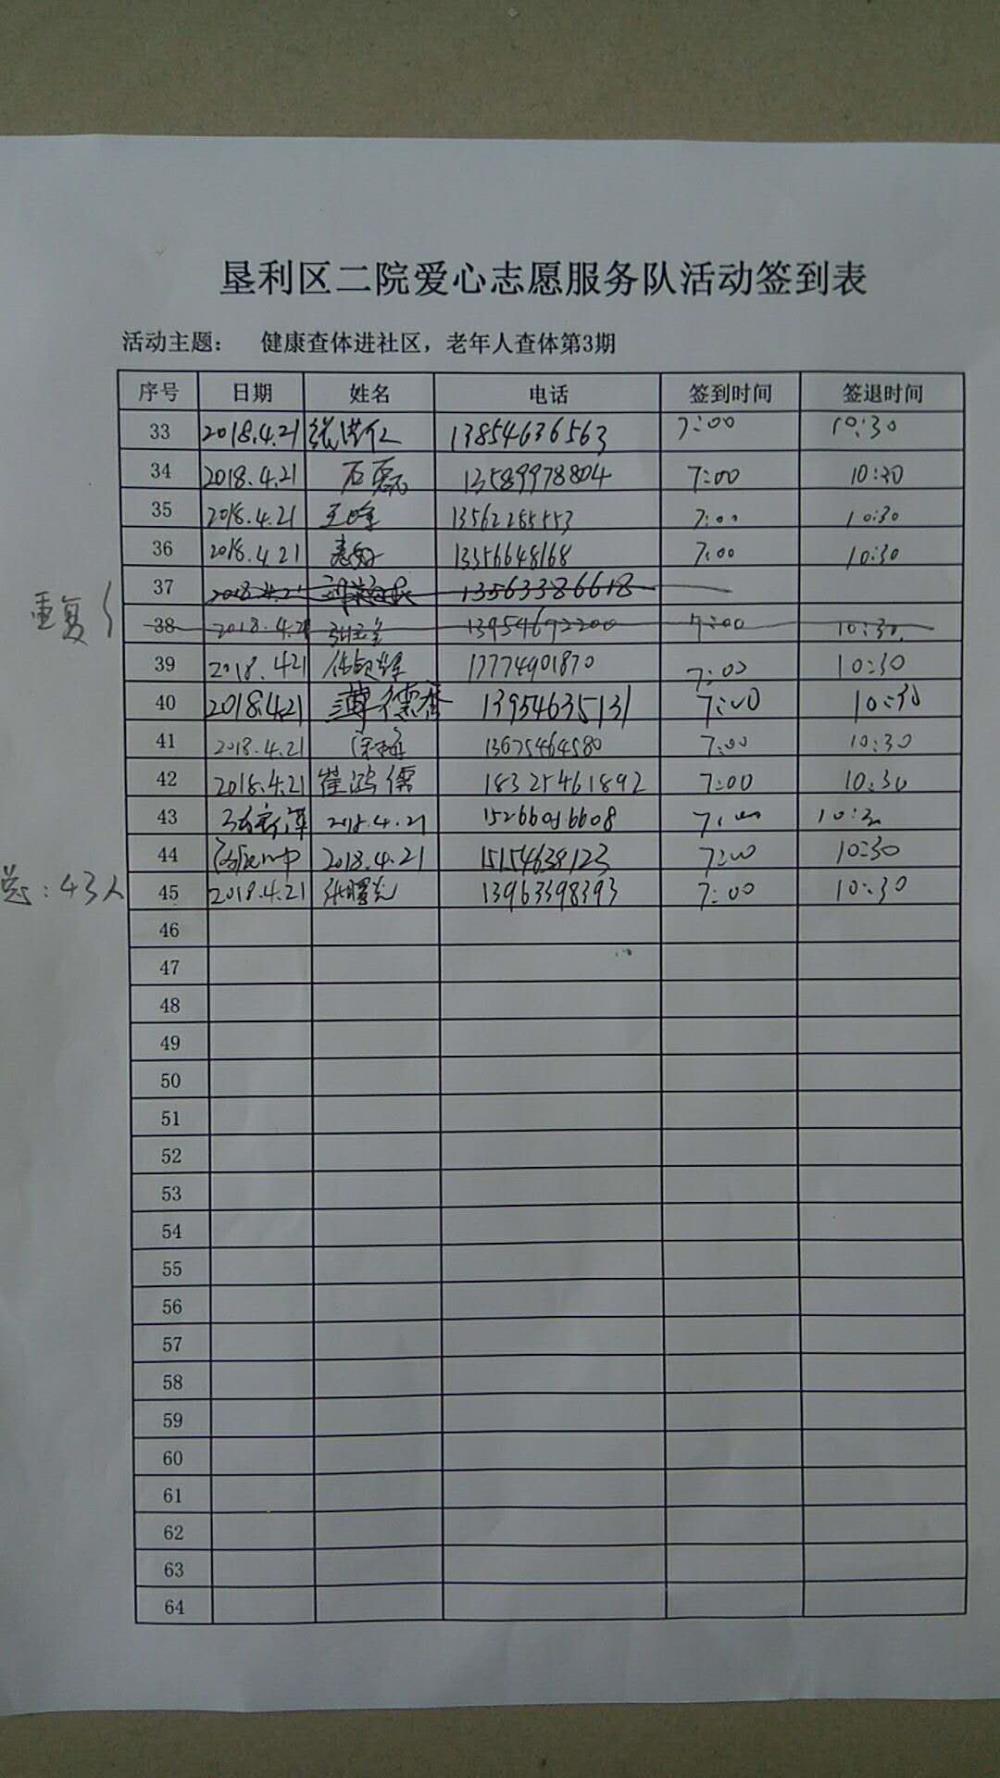 垦利区二院爱心志愿服务队活动签到表
活动主题： 健康查体进社区，老年人查体第3期
序号 日期 姓名 电话 签到时间 签退时间
33 2018.4.21 张洪仁 13854636563 7:00 10:30
34 2018.4.21 石磊 13589978804 7:00 10:30
35 2018.4.21 王峰 13562285553 7:00 10:30
36 2018.4.21 13356648168 7:00 10:30
重复
37 2018.4.21 13563386618
38 2018.4.21 13954692200 7:00 10:30
39 2018.421 17774901870 7:00 10:30
40 2018.4.21 薄德香 13954635131 7:00 10:30
41 2018.4.21 徐梅 13675464580 7:00 10:30
42 2018.4.21 崔鸿儒 18325461892 7:00 10:30
43 2018.4.21 15266016608 7:00 10:30
44 2018.4.21 15154639123 7:00 10:30
总：43人
45 2018.4.21 张曙光 13963398393 7:00 10:30
46
47
48
49
50
51
52
53
54
55
56
57
58
59
60
61
62
63
64